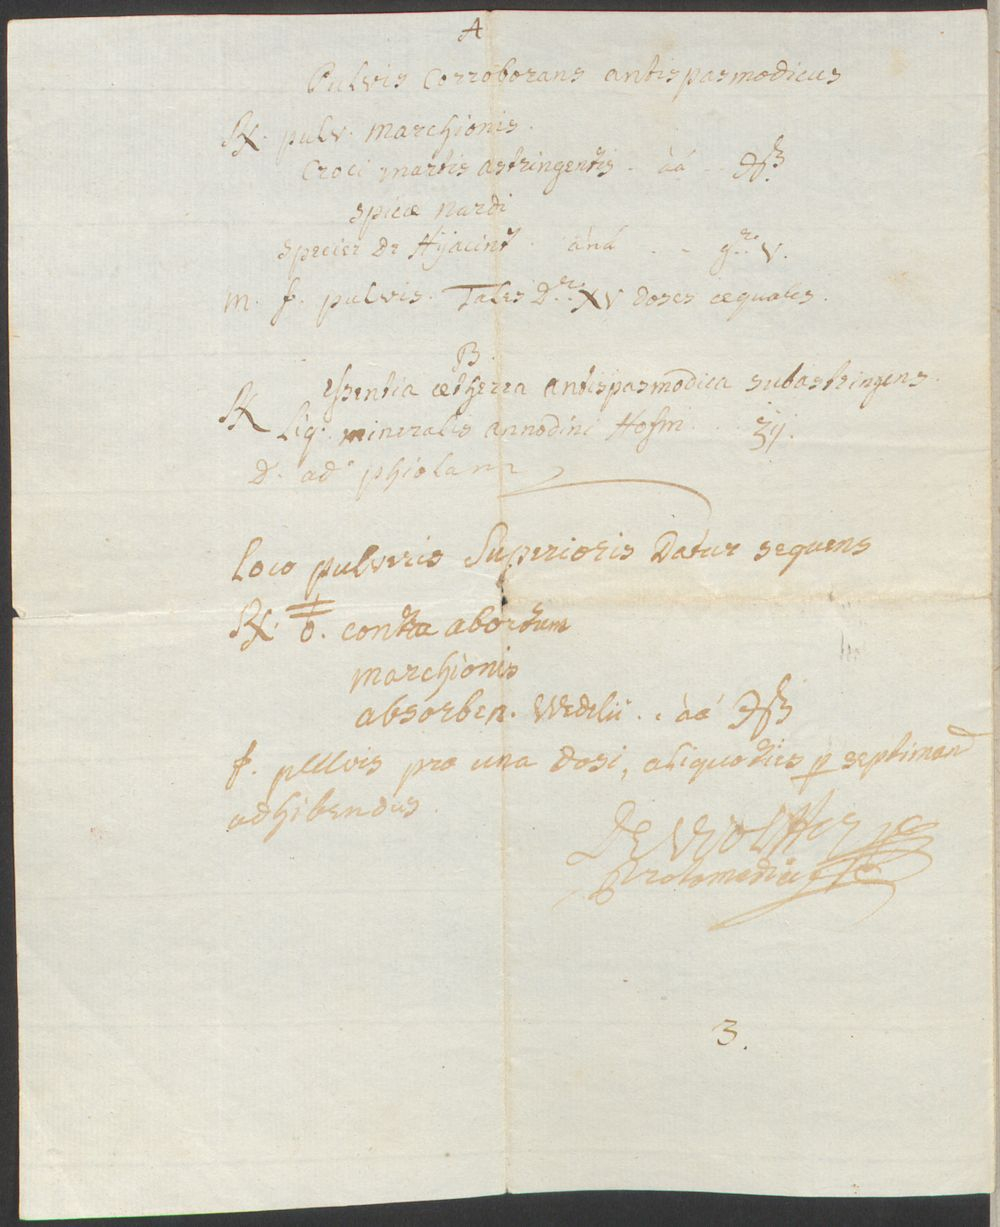 A
Pulvis Corroborans antispasmodicus
℞. pulv. Marchionis.
Croci martis astringentis. àá. ℈ß
spicæ nardi
speciei de Hijacint. áná . - gr. V.
M. f. pulvis. Tales Dr. XV doses æquales.
B.
Essentia ætherea antispasmodica subastringens.
℞ Liq. mineralis annodini Hofm. . . ʒij.
D. ad phiolam
Loco pulveris Superioris Datur sequens
℞. contra abortum
marchionis
absorben. Wedelii . . àá ℈ß
f. pulvis pro una dosi, aliquoties p septimana
adhibendus.
De
Protomedicus
3.